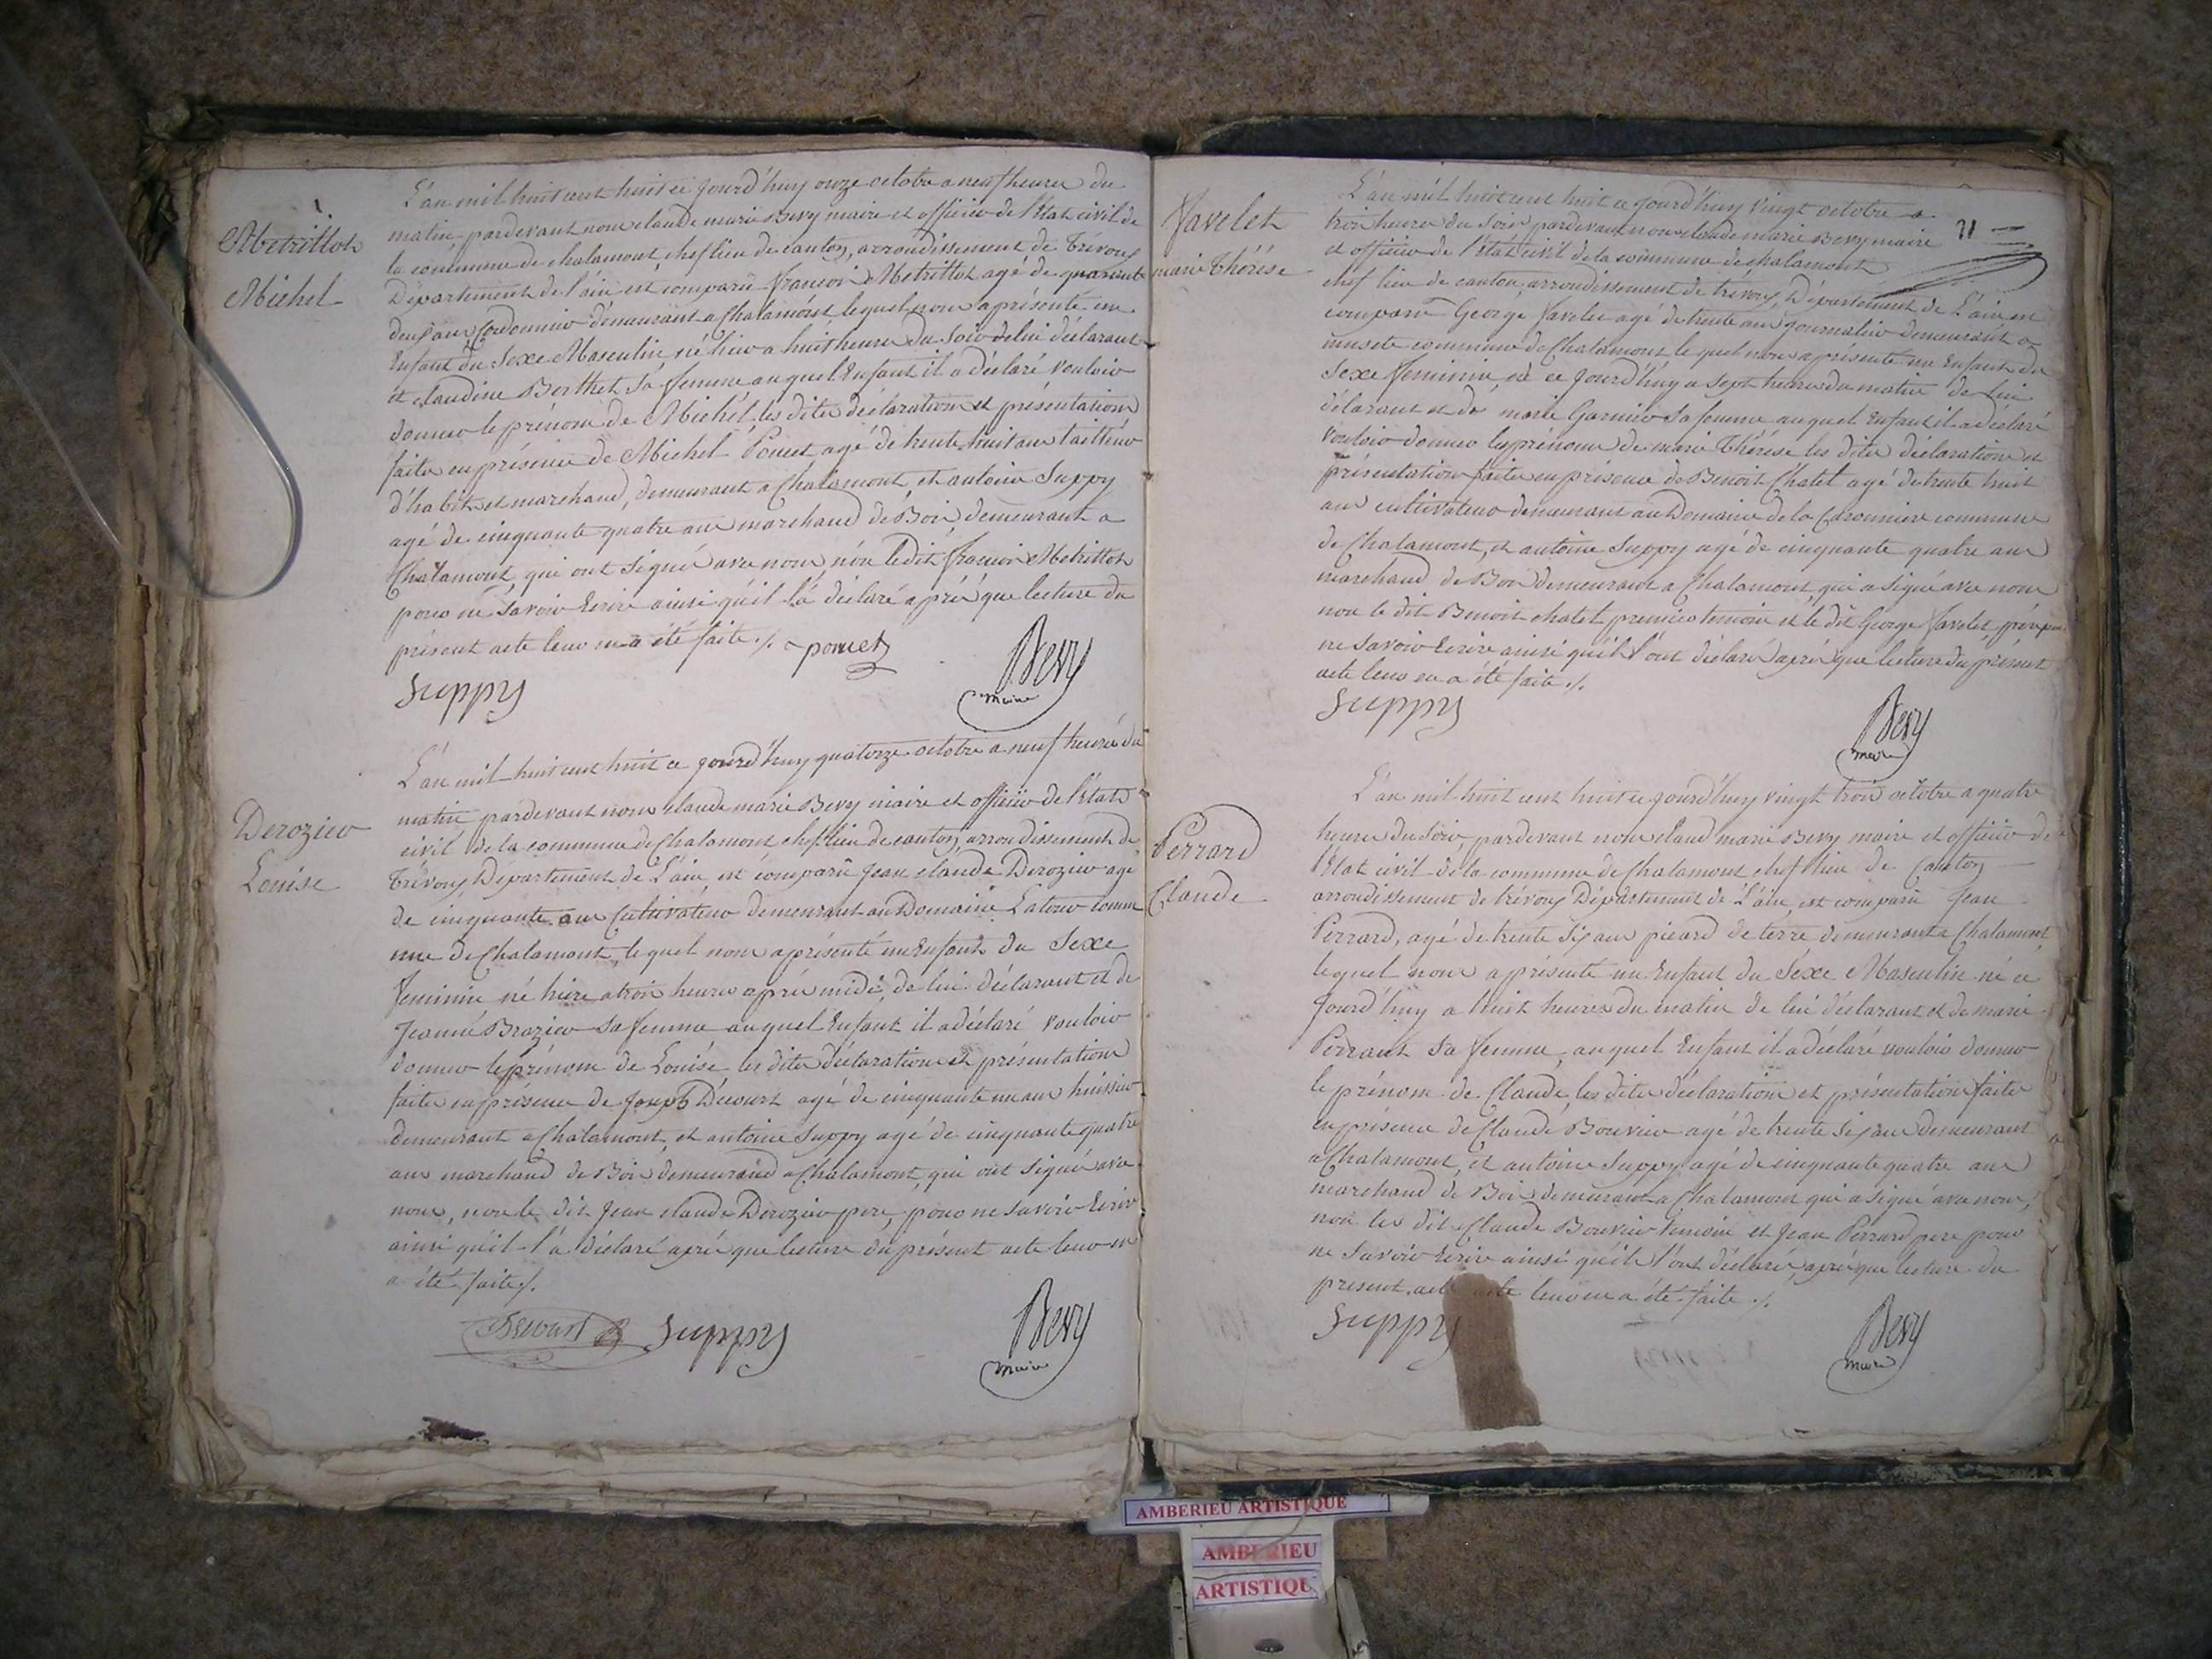 Metrillot
Michel
L'an mil huit cent huit ce jourd'huy onze octobre a neuf heures du
matin pardevant nous claude marie Bevy maire et officier de l'Etat civil de
la commune de chalamont, chef lieu de canton, arrondissement de Trévoux
Département de l'ain est comparû françois Metrillot agé de quarante
deux ans Cordonnier demeurant a Chalamont lequel nous a présenté un
Enfant du Sexe Masculin né hier a huit heures du Soir de lui déclarant
et claudine Berthet Sa femme auquel Enfant il a déclaré vouloir
donner le prénom de Michel les dites déclaration et présentation
faites en présence de Michel Poncet agé de trente huit ans tailleur
d'habits et marchand, demeurant a Chalamont, et antoine Suppy
agé de cinquante quatre ans marchand de Bois, demeurant a
Chalamont, qui ont Signé avec nous, non le dit françois Metrillot
pour ne Savoir Ecrire ainsi qu'il l'a déclaré après que lecture du
présent acte leur en a été faite ./. poncet
Suppy
Bevy
maire
Derozier
Louise
L'an mil huit cent huit ce jourd'huy quatorze octobre a neuf heures du
matin pardevant nous claude marie Bevy maire et officier de l'Etat
civil de la commune de Chalamont chef lieu de canton, arrondissement de
Trévoux Département de L'ain est comparû Jean claude Derozier agé
de cinquante ans Cultivateur demeurant au Domaine Latour comm
une de Chalamont, lequel nous a présenté un Enfant du Sexe
feminin né hier a trois heures après midi, de lui déclarant et de
Jeanne Brazier Sa femme auquel Enfant il a déclaré vouloir
donner le prénom de Louise les dites déclaration et présentation
faites en présence de Joseph Décourt agé de cinquante un ans huissier
demeurant a Chalamont, et antoine Suppy agé de cinquante quatre
ans marchand de Bois demeurand a Chalamont, qui ont Signé avec
nous, non le dit Jean claude Derozier pere, pour ne Savoir Ecrire
ainsi qu'il l'a déclaré après que lecture du présent acte leur en
a été faite ./.
Suppy
Bevy
maire
Favelet
marie Thérèse
21
L'an mil huit cent huit ce jourd'huy vingt octobre a
trois heures du Soir pardevant nous claude marie Bevy maire
et officier de l'Etat civil de la commune de chalamont
chef lieu de canton, arrondissement de trévoux, Département de L'ain est
comparû George favelet agé de trente ans journalier demeurant a
commune de Chalamont lequel nous a présenté un Enfant du
Sexe feminin, né ce jourd'huy a Sept heures du matin de lui
déclarant et de marie Garnier Sa femme auquel Enfant il a déclaré
vouloir donner les prénoms de marie Thérèse les dites déclaration et
présentation faites en présence de Benoit Chatet agé de trente huit
ans cultivateur demeurant au Domaine de la commune
de Chalamont, et antoine Suppy agé de cinquante quatre ans
marchand de Bois demeurant a Chalamont, qui a Signé avec nous
non le dit Benoit chatet premier temoin et le dit George favelet, père pour
ne Savoir Ecrire ainsi qu'ils l'ont déclaré après que lecture du présent
acte leur en a été faite ./.
Suppy
Bevy
maire
Perrard
Claude
L'an mil huit cent huit ce jourd'huy vingt trois octobre a quatre
heures du Soir, pardevant nous claud marie Bevy maire et officier de
l'Etat civil de la commune de Chalamont chef lieu de Canton
arrondissement de trévoux Département de L'ain est comparû Jean
Perrard, agé de trente Six ans picard de terre demeurant a Chalamont,
lequel nous a présenté un Enfant du Séxe Masculin né ce
Jourd'huy a huit heures du matin de lui déclarant et de marie
Perraut Sa femme, auquel Enfant il a déclaré vouloir donner
le prénom de Claude, les dites déclaration et présentation faites
en présence de Claude Bouvier agé de trente Six ans demeurant
a Chalamont, et antoine Suppy agé de cinquante quatre ans
marchand de Bois demeurant a Chalamont qui a Signé avec nous,
non les dits Claude Bouvier temoin et Jean Perrard pere pour
ne Savoir Ecrire ainsi qu'ils l'ont déclaré, après que lecture du
présent acte leur en a été faite ./.
Suppy
Bevy
maire
AMBERIEU ARTISTIQUE
AMBERIEU
ARTISTIQU